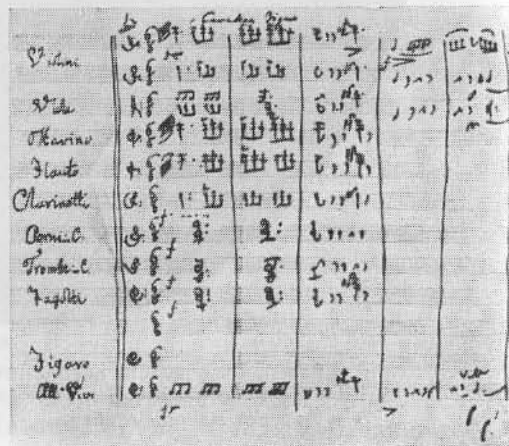 Cavatina Figaro
Violini
Viole
Ottavino
Flauto
Clarinetti
Corni_C.
Trombe_C.
Fagotti
Figaro